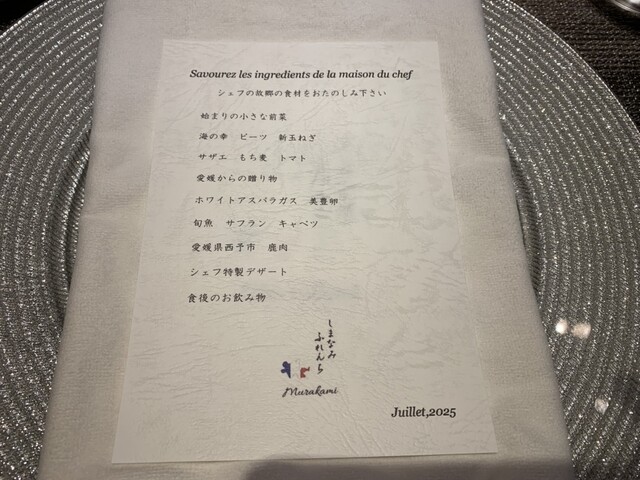 Savourez les ingredients de la maison du chef
シェフの故郷の食材をおたのしみ下さい
始まりの小さな前菜
海の幸　ビーツ　新玉ねぎ
サザエ　もち麦　トマト
愛媛からの贈り物
ホワイトアスパラガス　美豊卵
旬魚　サフラン　キャベツ
愛媛県西予市　鹿肉
シェフ特製デザート
食後のお飲み物
しまなみ
ふれんち
Murakami
Juillet,2025